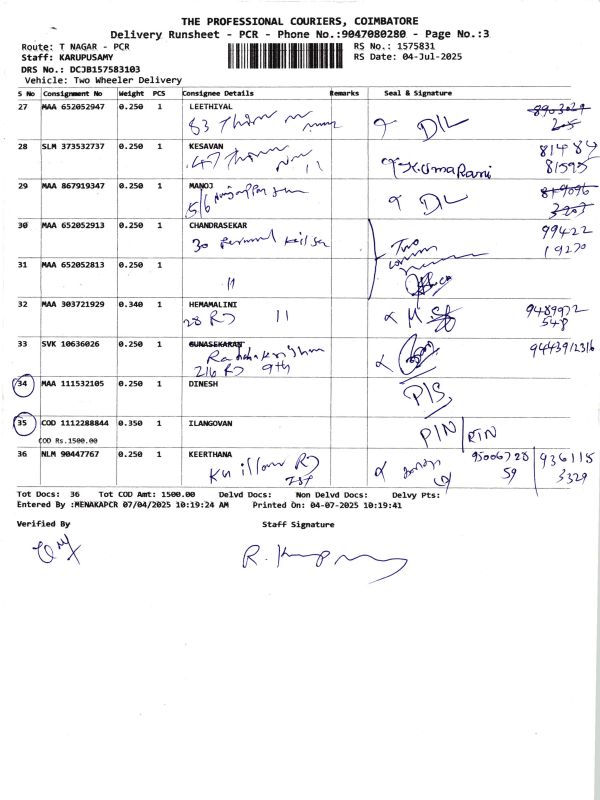 THE PROFESSIONAL COURIERS, COIMBATORE
Delivery Runsheet - PCR - Phone No.:9047080280 - Page No.:3
Route: T NAGAR - PCR
RS No.: 1575831
Staff: KARUPUSAMY
RS Date: 04-Jul-2025
DRS No.: DCJB157583103
Vehicle: Two Wheeler Delivery
S No Consignment No Weight PCS Consignee Details Remarks Seal & Signature
27 MAA 652052947 0.250 1 LEETHIYAL
83 D/L
28 SLM 373532737 0.250 1 KESAVAN 81484
47 11 KumaRani 81595
29 MAA 867919347 0.250 1 MANOJ
5/6 D/L
30 MAA 652052913 0.250 1 CHANDRASEKAR 99422
30 Two 19270
31 MAA 652052813 0.250 1
11
32 MAA 303721929 0.340 1 HEMAMALINI 9489972
28 RD 11 548
33 SVK 10636026 0.250 1 GUNASEKARAN 9443912316
216 RD 9th
34 MAA 111532105 0.250 1 DINESH P/S
35 COD 1112288844 0.350 1 ILANGOVAN P/N RTN
COD Rs.1500.00
36 NLM 90447767 0.250 1 KEERTHANA 95006728 936118
RD 59 3329
Tot Docs: 36 Tot COD Amt: 1500.00 Delvd Docs: Non Delvd Docs: Delvy Pts:
Entered By :MENAKAPCR 07/04/2025 10:19:24 AM Printed On: 04-07-2025 10:19:41
Verified By Staff Signature